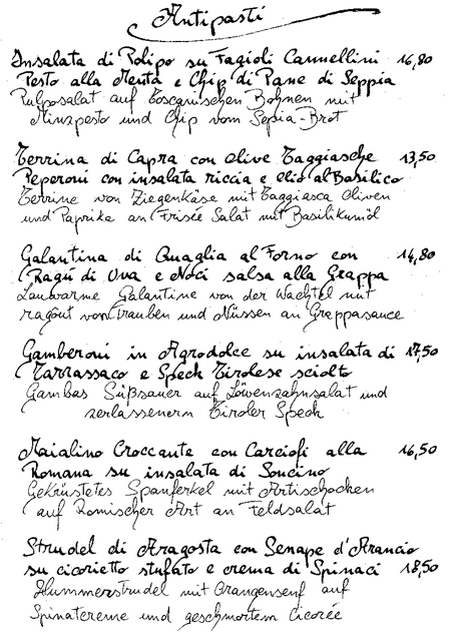 Antipasti
Insalata di Polipo su Fagioli Cannellini 16,80
Pesto alla Menta e Chip di Pane di Seppia
Pulposalat auf Toscanischen Bohnen mit
Minzpesto und Chip vom Sepia-Brot
Terrina di Capra con Olive Taggiasche 13,50
Peperoni con insalata riccia e olio al Basilico
Terrine von Ziegenkäse mit Taggiasca Oliven
und Paprika an Frisée Salat mit Basilikumöl
Galantina di Quaglia al Forno con 14,80
Ragú di Uva e Noci salsa alla Grappa
Lauwarme Galantine von der Wachtel mit
ragôut von Trauben und Nüssen an Grappasauce
Gamberoni in Agrodolce su insalata di 17,50
Tarrassaco e Speck Tirolese sciolto
Gambas Süßsauer auf Löwenzahnsalat und
zerlassenem Tiroler Speck
Maialino Croccante con Carciofi alla 16,50
Romana su insalata di Soncino
Gekrüstetes Spanferkel mit Artischocken
auf Römischer Art an Feldsalat
Strudel di Aragosta con Senape d'Arancio
su cicorietto stufato e crema di Spinaci 18,50
Hummerstrudel mit Orangensenf auf
Spinatcreme und geschmortem Cicorée